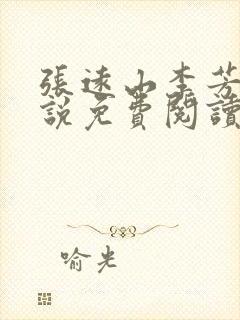 張遠山李芳
說免費閱讀
喻光